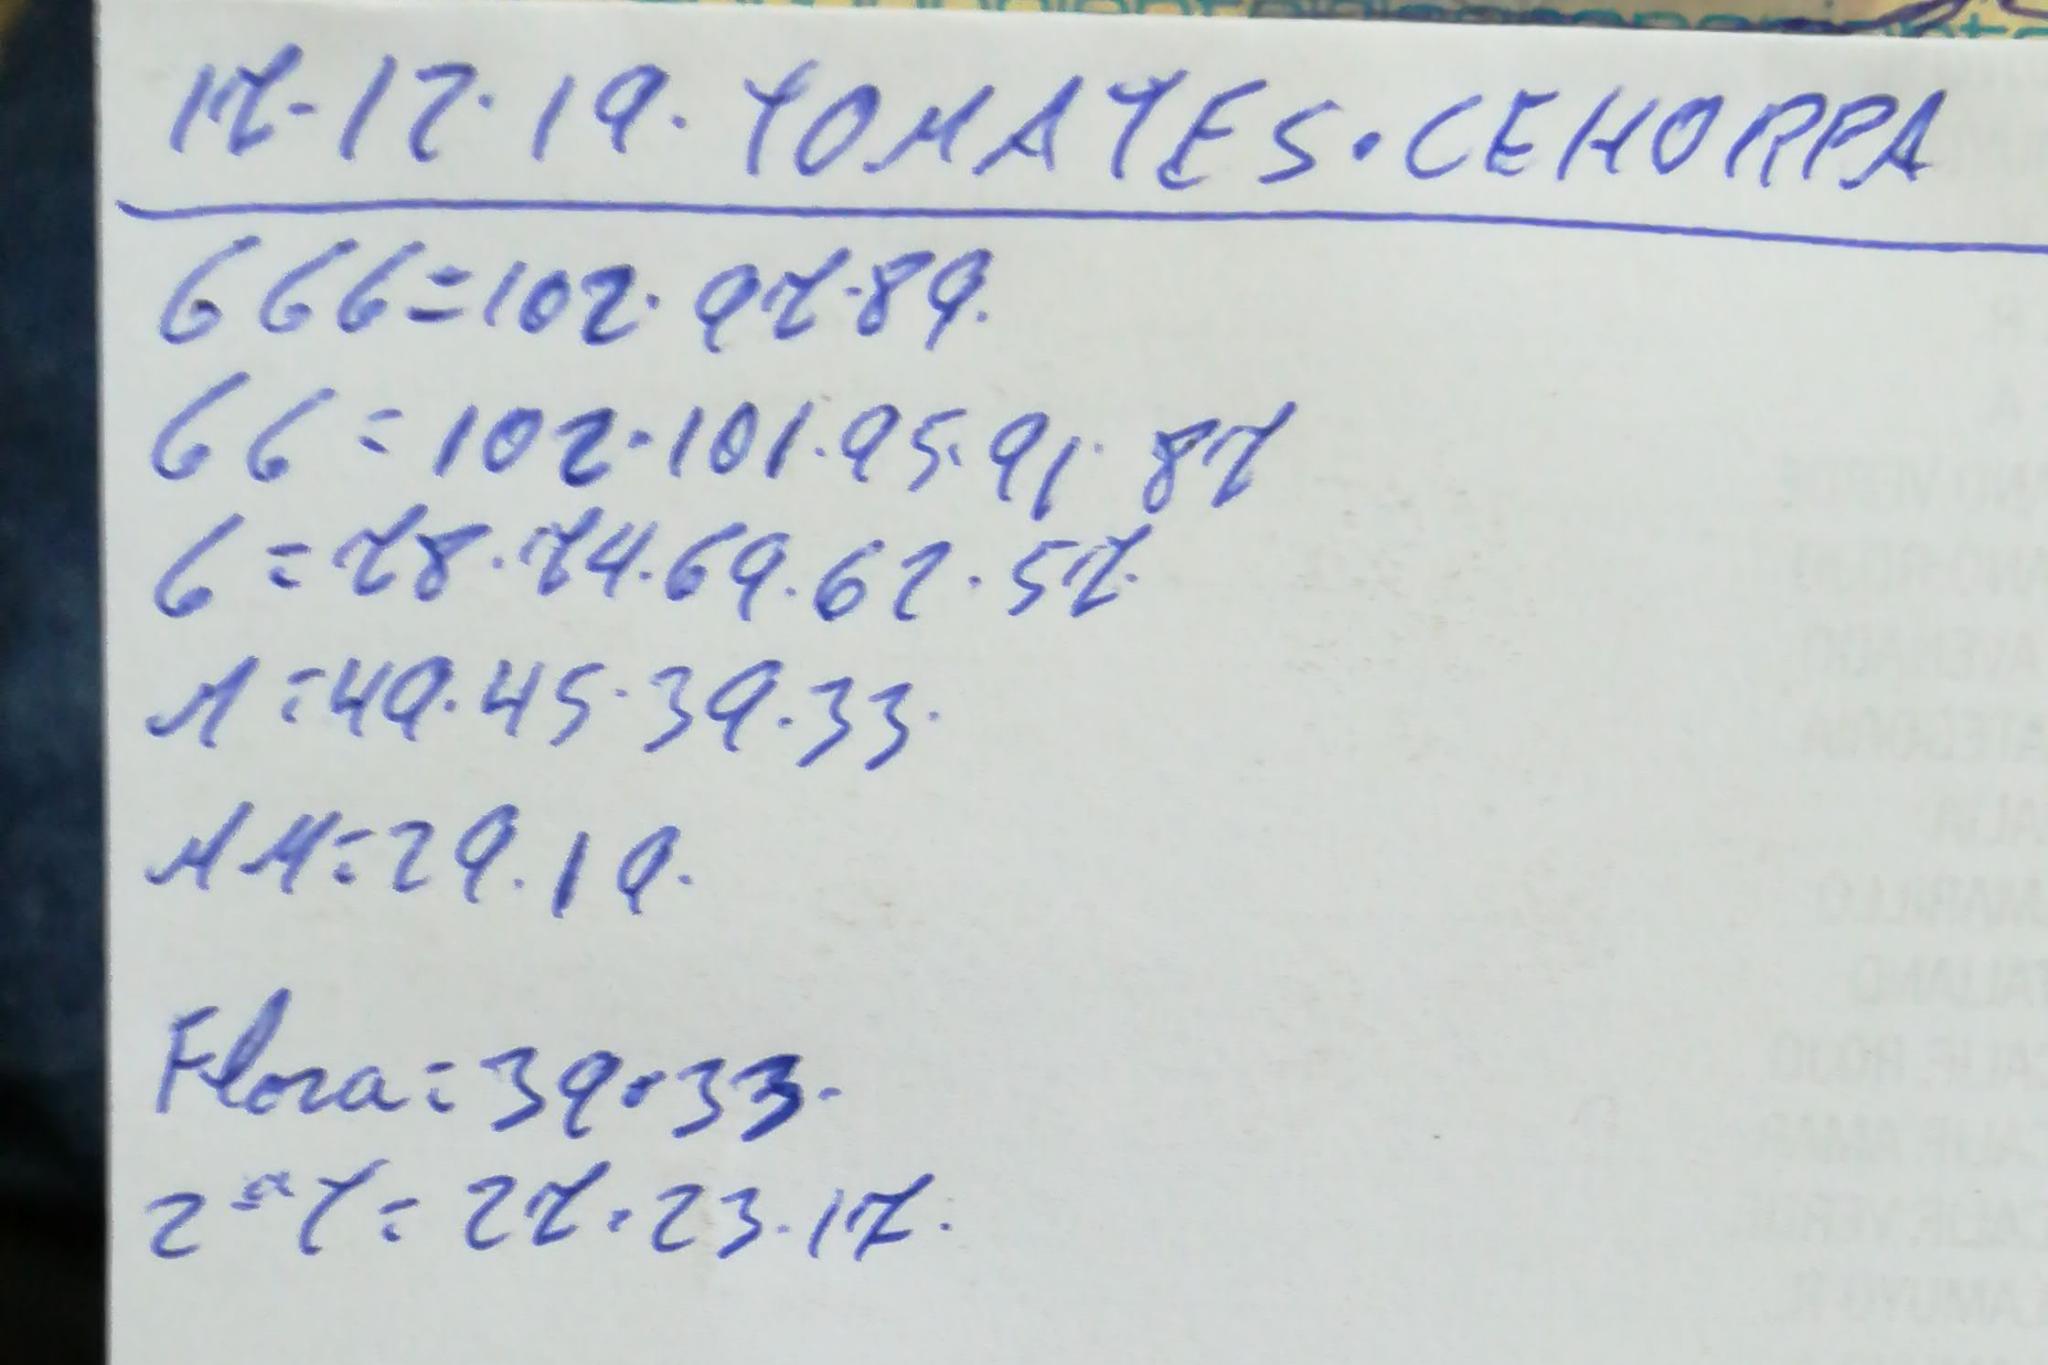 17-12-19. TOMATES. CEHORPA
GGG=102. 97.89.
GG=102.101.95.91.87
G=78.74.69.62.57.
M=49.45.39.33.
MM=29.19.
Flora=39.33.
2ªT=27.23.17.